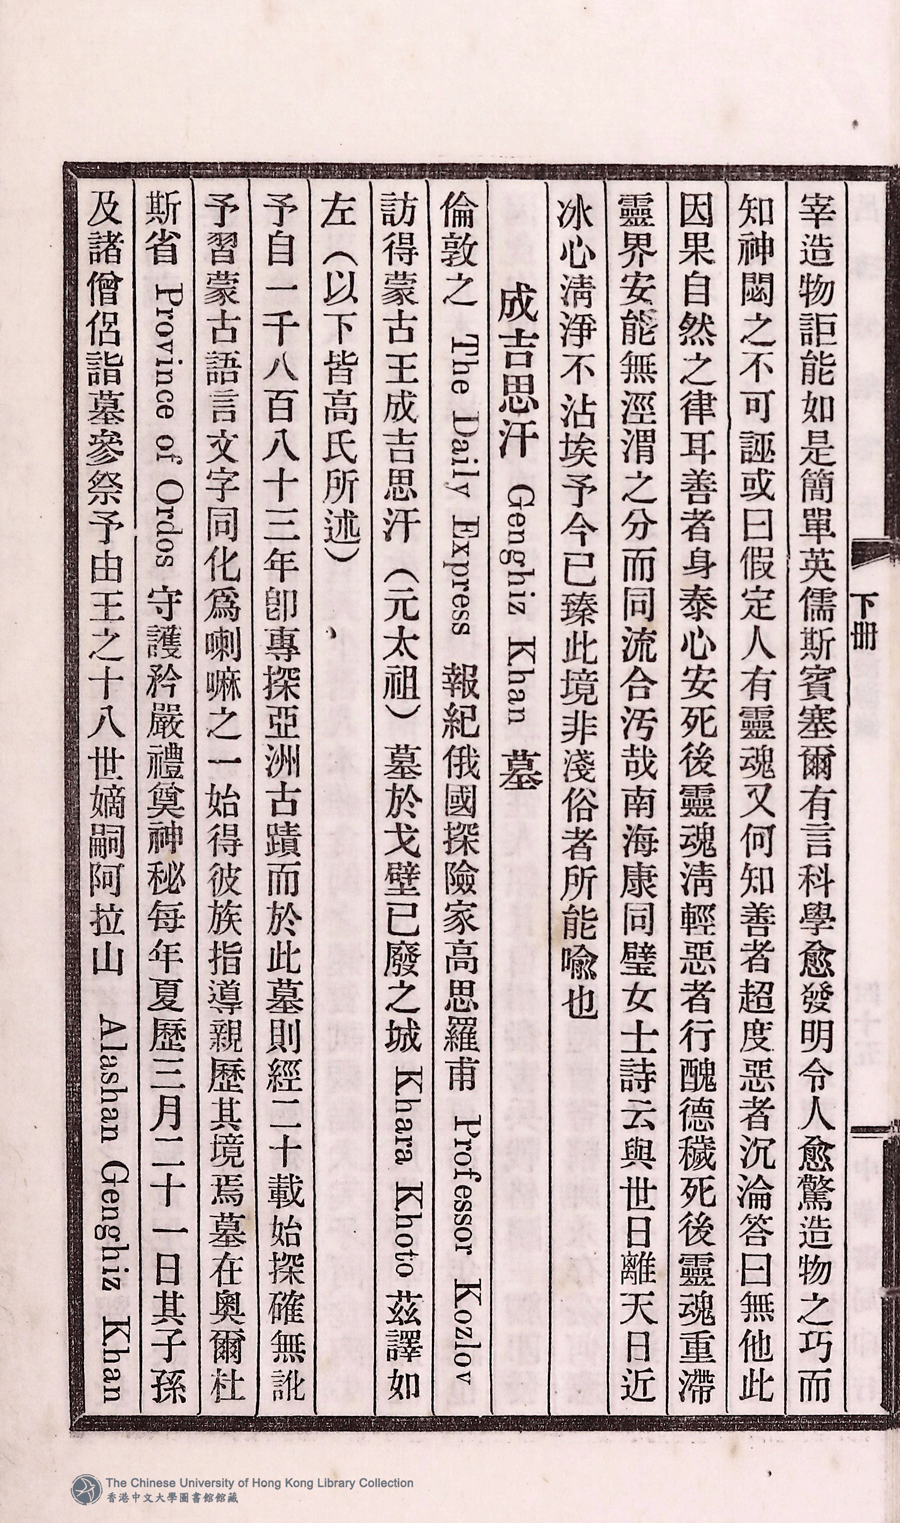 下冊
宰造物詎能如是簡單英儒斯賓塞爾有言科學愈發明令人愈驚造物之巧而
知神閟之不可誣或曰假定人有靈魂又何知善者超度惡者沉淪答曰無他此
因果自然之律耳善者身泰心安死後靈魂淸輕惡者行醜德穢死後靈魂重滯
靈界安能無涇渭之分而同流合汚哉南海康同璧女士詩云與世日離天日近
冰心淸淨不沾埃予今已臻此境非淺俗者所能喻也
成吉思汗 Genghiz Khan 墓
倫敦之 The Daily Express 報紀俄國探險家高思羅甫 Professor Kozlov
訪得蒙古王成吉思汗（元太祖）墓於戈壁已廢之城 Khara Khoto 茲譯如
左（以下皆高氏所述）
予自一千八百八十三年卽專探亞洲古蹟而於此墓則經二十載始探確無訛
予習蒙古語言文字同化爲喇嘛之一始得彼族指導親歷其境焉墓在奧爾杜
斯省 Province of Ordos 守護矜嚴禮奠神秘每年夏歷三月二十一日其子孫
及諸僧侶詣墓參祭予由王之十八世嫡嗣阿拉山 Alashan Genghiz Khan
The Chinese University of Hong Kong Library Collection
香港中文大學圖書館館藏